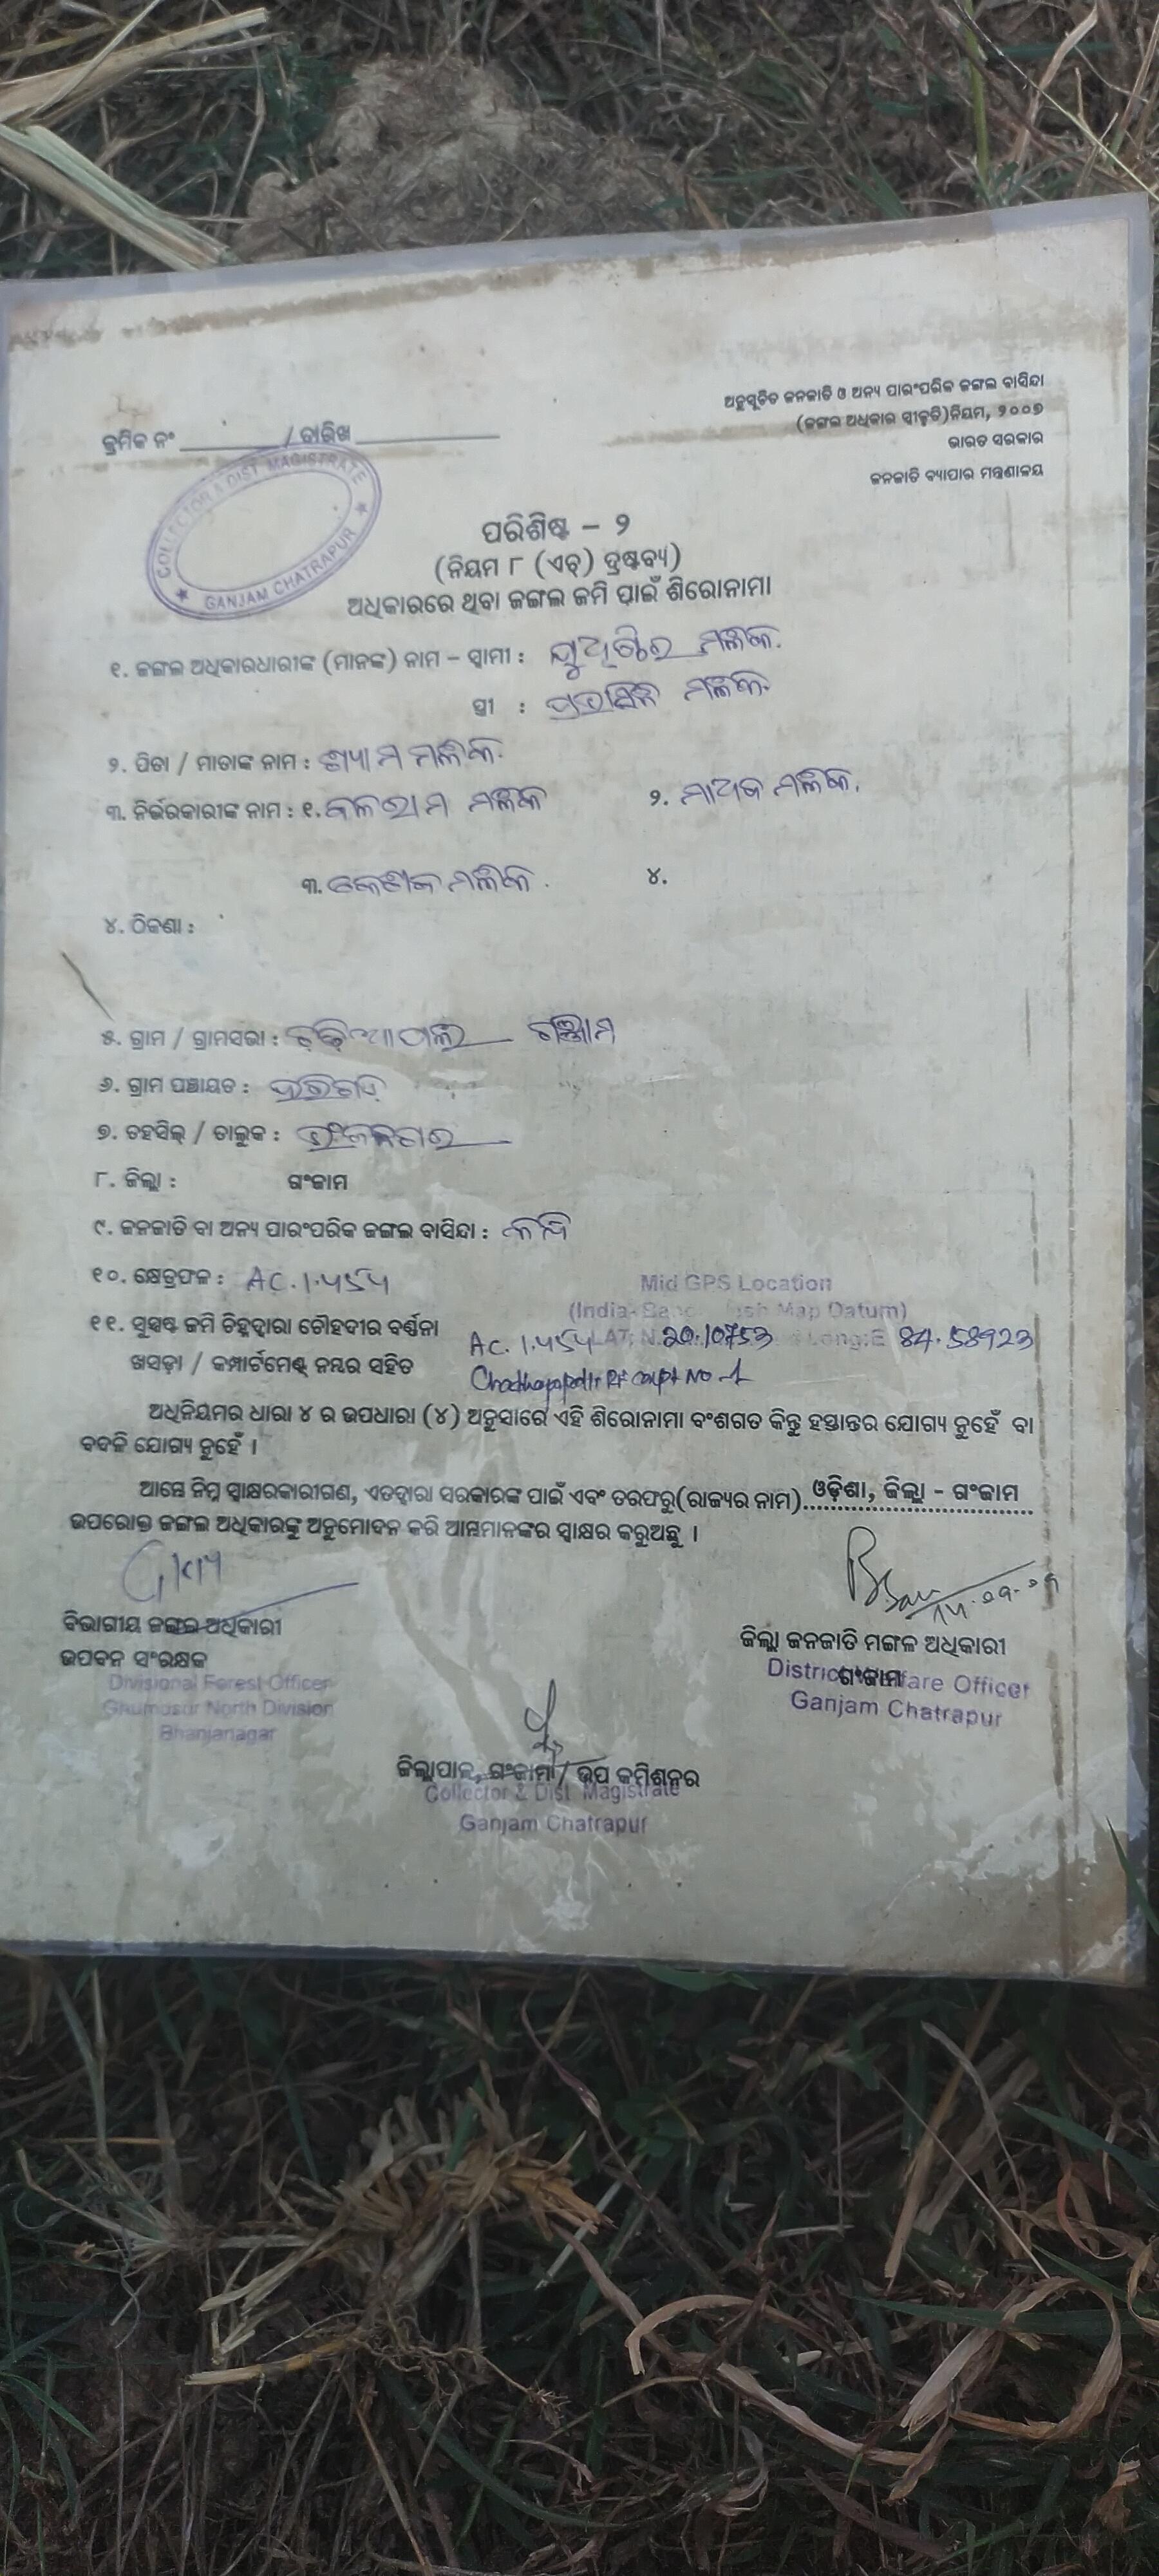 ଅନୁସୂଚିତ ଜନଜାତି ଓ ଅନ୍ୟ ପାରଂପରିକ ଜଙ୍ଗଲ ବାସିନ୍ଦା
(ଜଙ୍ଗଲ ଅଧିକାର ସ୍ୱୀକୃତି)ନିୟମ, ୨୦୦୭
ଭାରତ ସରକାର
ଜନଜାତି ବ୍ୟାପାର ମନ୍ତ୍ରଣାଳୟ
କ୍ରମିକ ନଂ ________ / ତାରିଖ ________
COLLECTOR & DIST. MAGISTRATE
★ GANJAM CHATRAPUR ★
ପରିଶିଷ୍ଟ – ୨
(ନିୟମ ୮ (ଏଚ୍) ଦ୍ରଷ୍ଟବ୍ୟ)
ଅଧିକାରରେ ଥିବା ଜଙ୍ଗଲ ଜମି ପାଇଁ ଶିରୋନାମା
୧. ଜଙ୍ଗଲ ଅଧିକାରଧାରୀଙ୍କ (ମାନଙ୍କ) ନାମ – ସ୍ୱାମୀ : ଯୁଧିଷ୍ଠିର ମଲ୍ଲିକ.
ସ୍ତ୍ରୀ : ମଲ୍ଲିକ
୨. ପିତା / ମାତାଙ୍କ ନାମ : ଶ୍ୟାମ ମଲ୍ଲିକ.
୩. ନିର୍ଭରକାରୀଙ୍କ ନାମ : ୧. ବଳରାମ ମଲ୍ଲିକ ୨. ମାଧବ ମଲ୍ଲିକ.
୩. କେଶବ ମଲ୍ଲିକ. ୪.
୪. ଠିକଣା :
୫. ଗ୍ରାମ / ଗ୍ରାମସଭା : ଗଞ୍ଜାମ
୬. ଗ୍ରାମ ପଞ୍ଚାୟତ :
୭. ତହସିଲ୍ / ତାଲୁକ : ଭଂଜନଗର
୮. ଜିଲ୍ଲା : ଗଂଜାମ
୯. ଜନଜାତି ବା ଅନ୍ୟ ପାରଂପରିକ ଜଙ୍ଗଲ ବାସିନ୍ଦା : କନ୍ଧ
୧୦. କ୍ଷେତ୍ରଫଳ : AC.
Mid GPS Location
(India- Map Datum)
୧୧. ସୁସ୍ପଷ୍ଟ ଜମି ଚିହ୍ନଦ୍ୱାରା ଚୌହଦୀର ବର୍ଣ୍ଣନା Ac. LAT: N 20.10753 Long:E 84.58923
ଖସଡ଼ା / କମ୍ପାର୍ଟମେଣ୍ଟ୍ ନମ୍ବର ସହିତ No 1
ଅଧିନିୟମର ଧାରା ୪ ର ଉପଧାରା (୪) ଅନୁସାରେ ଏହି ଶିରୋନାମା ବଂଶଗତ କିନ୍ତୁ ହସ୍ତାନ୍ତର ଯୋଗ୍ୟ ନୁହେଁ ବା
ବଦଳି ଯୋଗ୍ୟ ନୁହେଁ ।
ଆମ୍ଭେ ନିମ୍ନ ସ୍ୱାକ୍ଷରକାରୀଗଣ, ଏତଦ୍ୱାରା ସରକାରଙ୍କ ପାଇଁ ଏବଂ ତରଫରୁ(ରାଜ୍ୟର ନାମ) ଓଡ଼ିଶା, ଜିଲ୍ଲା - ଗଂଜାମ
ଉପରୋକ୍ତ ଜଙ୍ଗଲ ଅଧିକାରଙ୍କୁ ଅନୁମୋଦନ କରି ଆମ୍ଭମାନଙ୍କର ସ୍ୱାକ୍ଷର କରୁଅଛୁ ।
ବିଭାଗୀୟ ଜଙ୍ଗଲ ଅଧିକାରୀ
ଉପବନ ସଂରକ୍ଷକ
Divisional Forest Officer
Ghumusur North Division
Bhanjanagar
ଜିଲ୍ଲା ଜନଜାତି ମଙ୍ଗଳ ଅଧିକାରୀ
ଗଂଜାମ
District Welfare Officer
Ganjam Chatrapur
ଜିଲ୍ଲାପାଳ, ଗଂଜାମ / ଉପ କମିଶନର
Collector & Dist. Magistrate
Ganjam Chatrapur